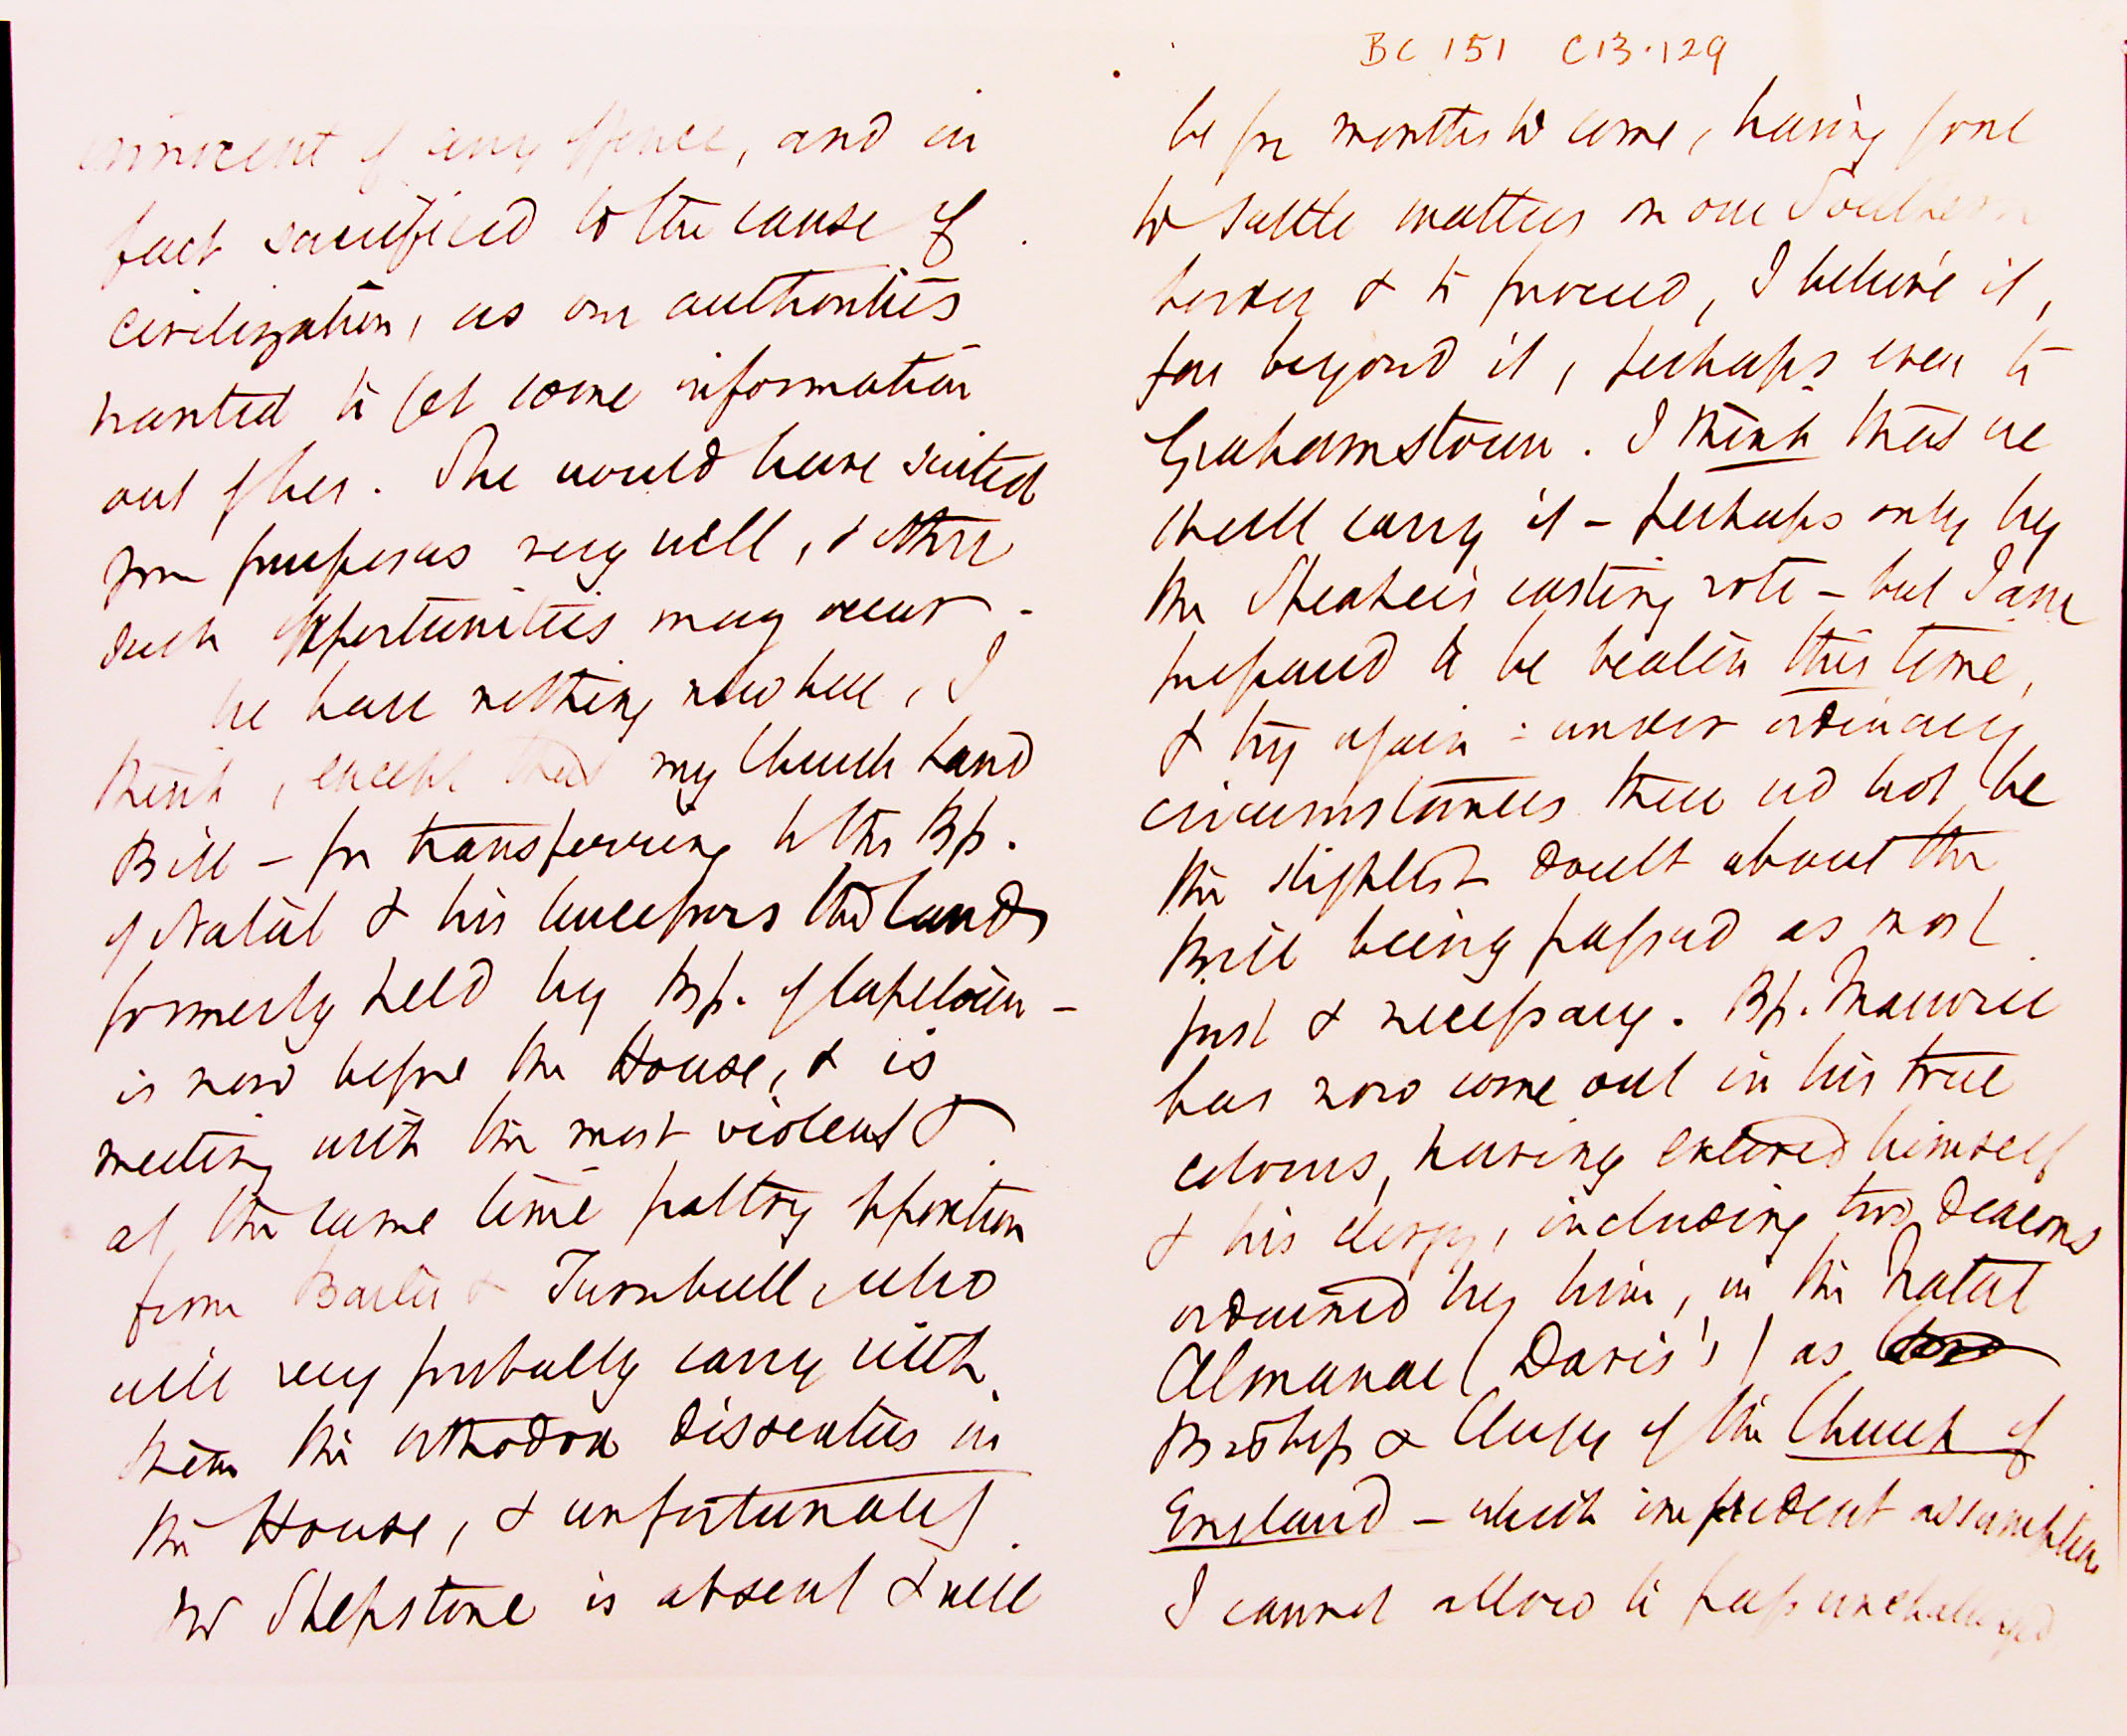 BC 151 C13.129
innocent of any offence, and in
fact sacrificed to the cause of
civilization, as our authorities
wanted to get some information
out of her. She would have suited
your purposes very well, & other
such opportunities may occur.
We have nothing new here, I
think, except that my Church Land
Bill — for transferring to the Bp.
of Natal & his successors the lands
formerly held by Bp. of Capetown —
is now before the House, & is
meeting with the most violent &
at the same time paltry opposition
from Barter & Turnbull, who
will very probably carry with
them the orthodox dissenters in
the House, & unfortunately
Mr Shepstone is absent & will
be for months to come, having gone
to settle matters on our Southern
border & to proceed, I believe it,
far beyond it, perhaps even to
Grahamstown. I think that we
shall carry it — perhaps only by
the Speaker's casting vote — but I am
prepared to be beaten this time,
& try again: under ordinary
circumstances there wd not be
the slightest doubt about the
Bill being passed as most
just & necessary. Bp. Macrorie
has now come out in his true
colours, having entered himself
& his clergy, including two deacons
ordained by him, in the Natal
Almanac (Davis's) as
Bishop & Clergy of the Church of
England — which impudent assumption
I cannot allow to pass unchallenged